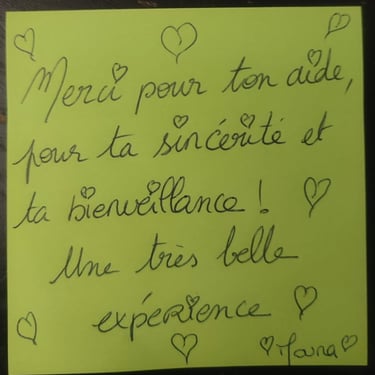 Merci pour ton aide,
pour ta sincérité et
ta bienveillance !
Une très belle
expérience